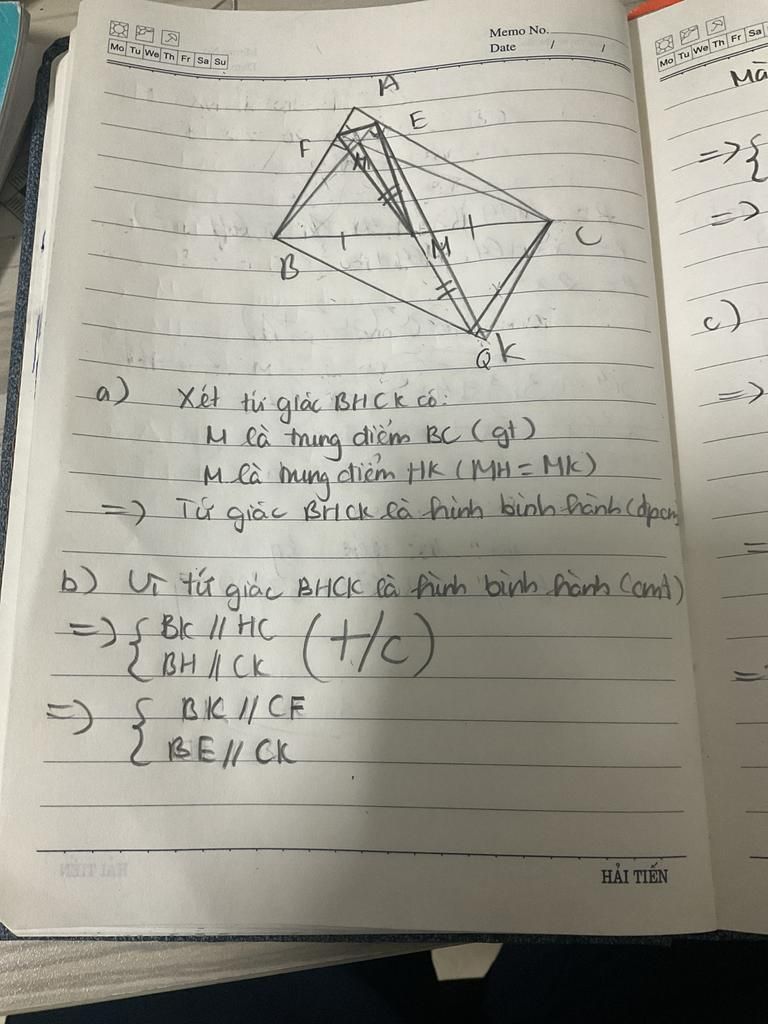 Memo No.
Mo Tu We Th Fr Sa Su
Date / /
Mo Tu We Th Fr Sa
A
E
F
H
M
B
C
Q K
a) Xét tứ giác BHCK có:
M là trung điểm BC (gt)
M là trung điểm HK (MH = MK)
=> Tứ giác BHCK là hình bình hành (đpcm)
b) Vì tứ giác BHCK là hình bình hành (cmt)
=> { BK // HC
BH // CK (t/c)
=> { BK // CF
BE // CK
HẢI TIẾN
Mà
=> {
=>
c)
=>
=
=